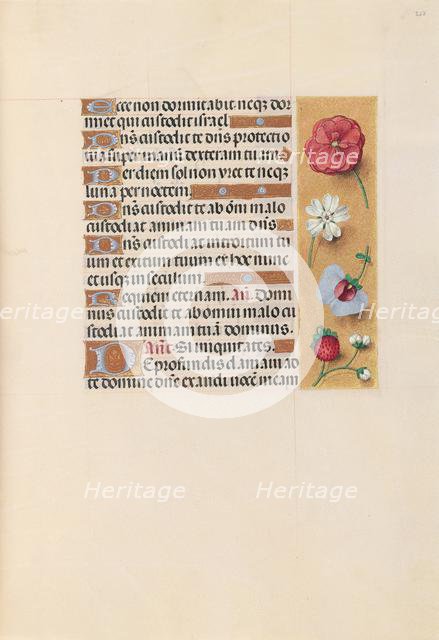 Ecce non dormitabit neqz dor
miet qui custodit israel
Dn̄s custodit te dn̄s protectio
tua super manū dexteram tuam
Per diem sol non vret te neqz
luna per noctem
Dn̄s custodit te ab ōm̄i malo
custodiat animam tuam dn̄s
Dn̄s custodiat introitum tu
um et exitum tuum et hoc nunc
et usqz in seculum.
Requiem eternam. An̄. Domi
nus custodit te ab ōm̄i malo cu
stodiat animam tuā dominus.
An̄e Si iniquitates.
De profundis clamaui ad
te domine dn̄e exaudi vocē meam
Heritage
Heritage
Heritage
Heritage
Heritage